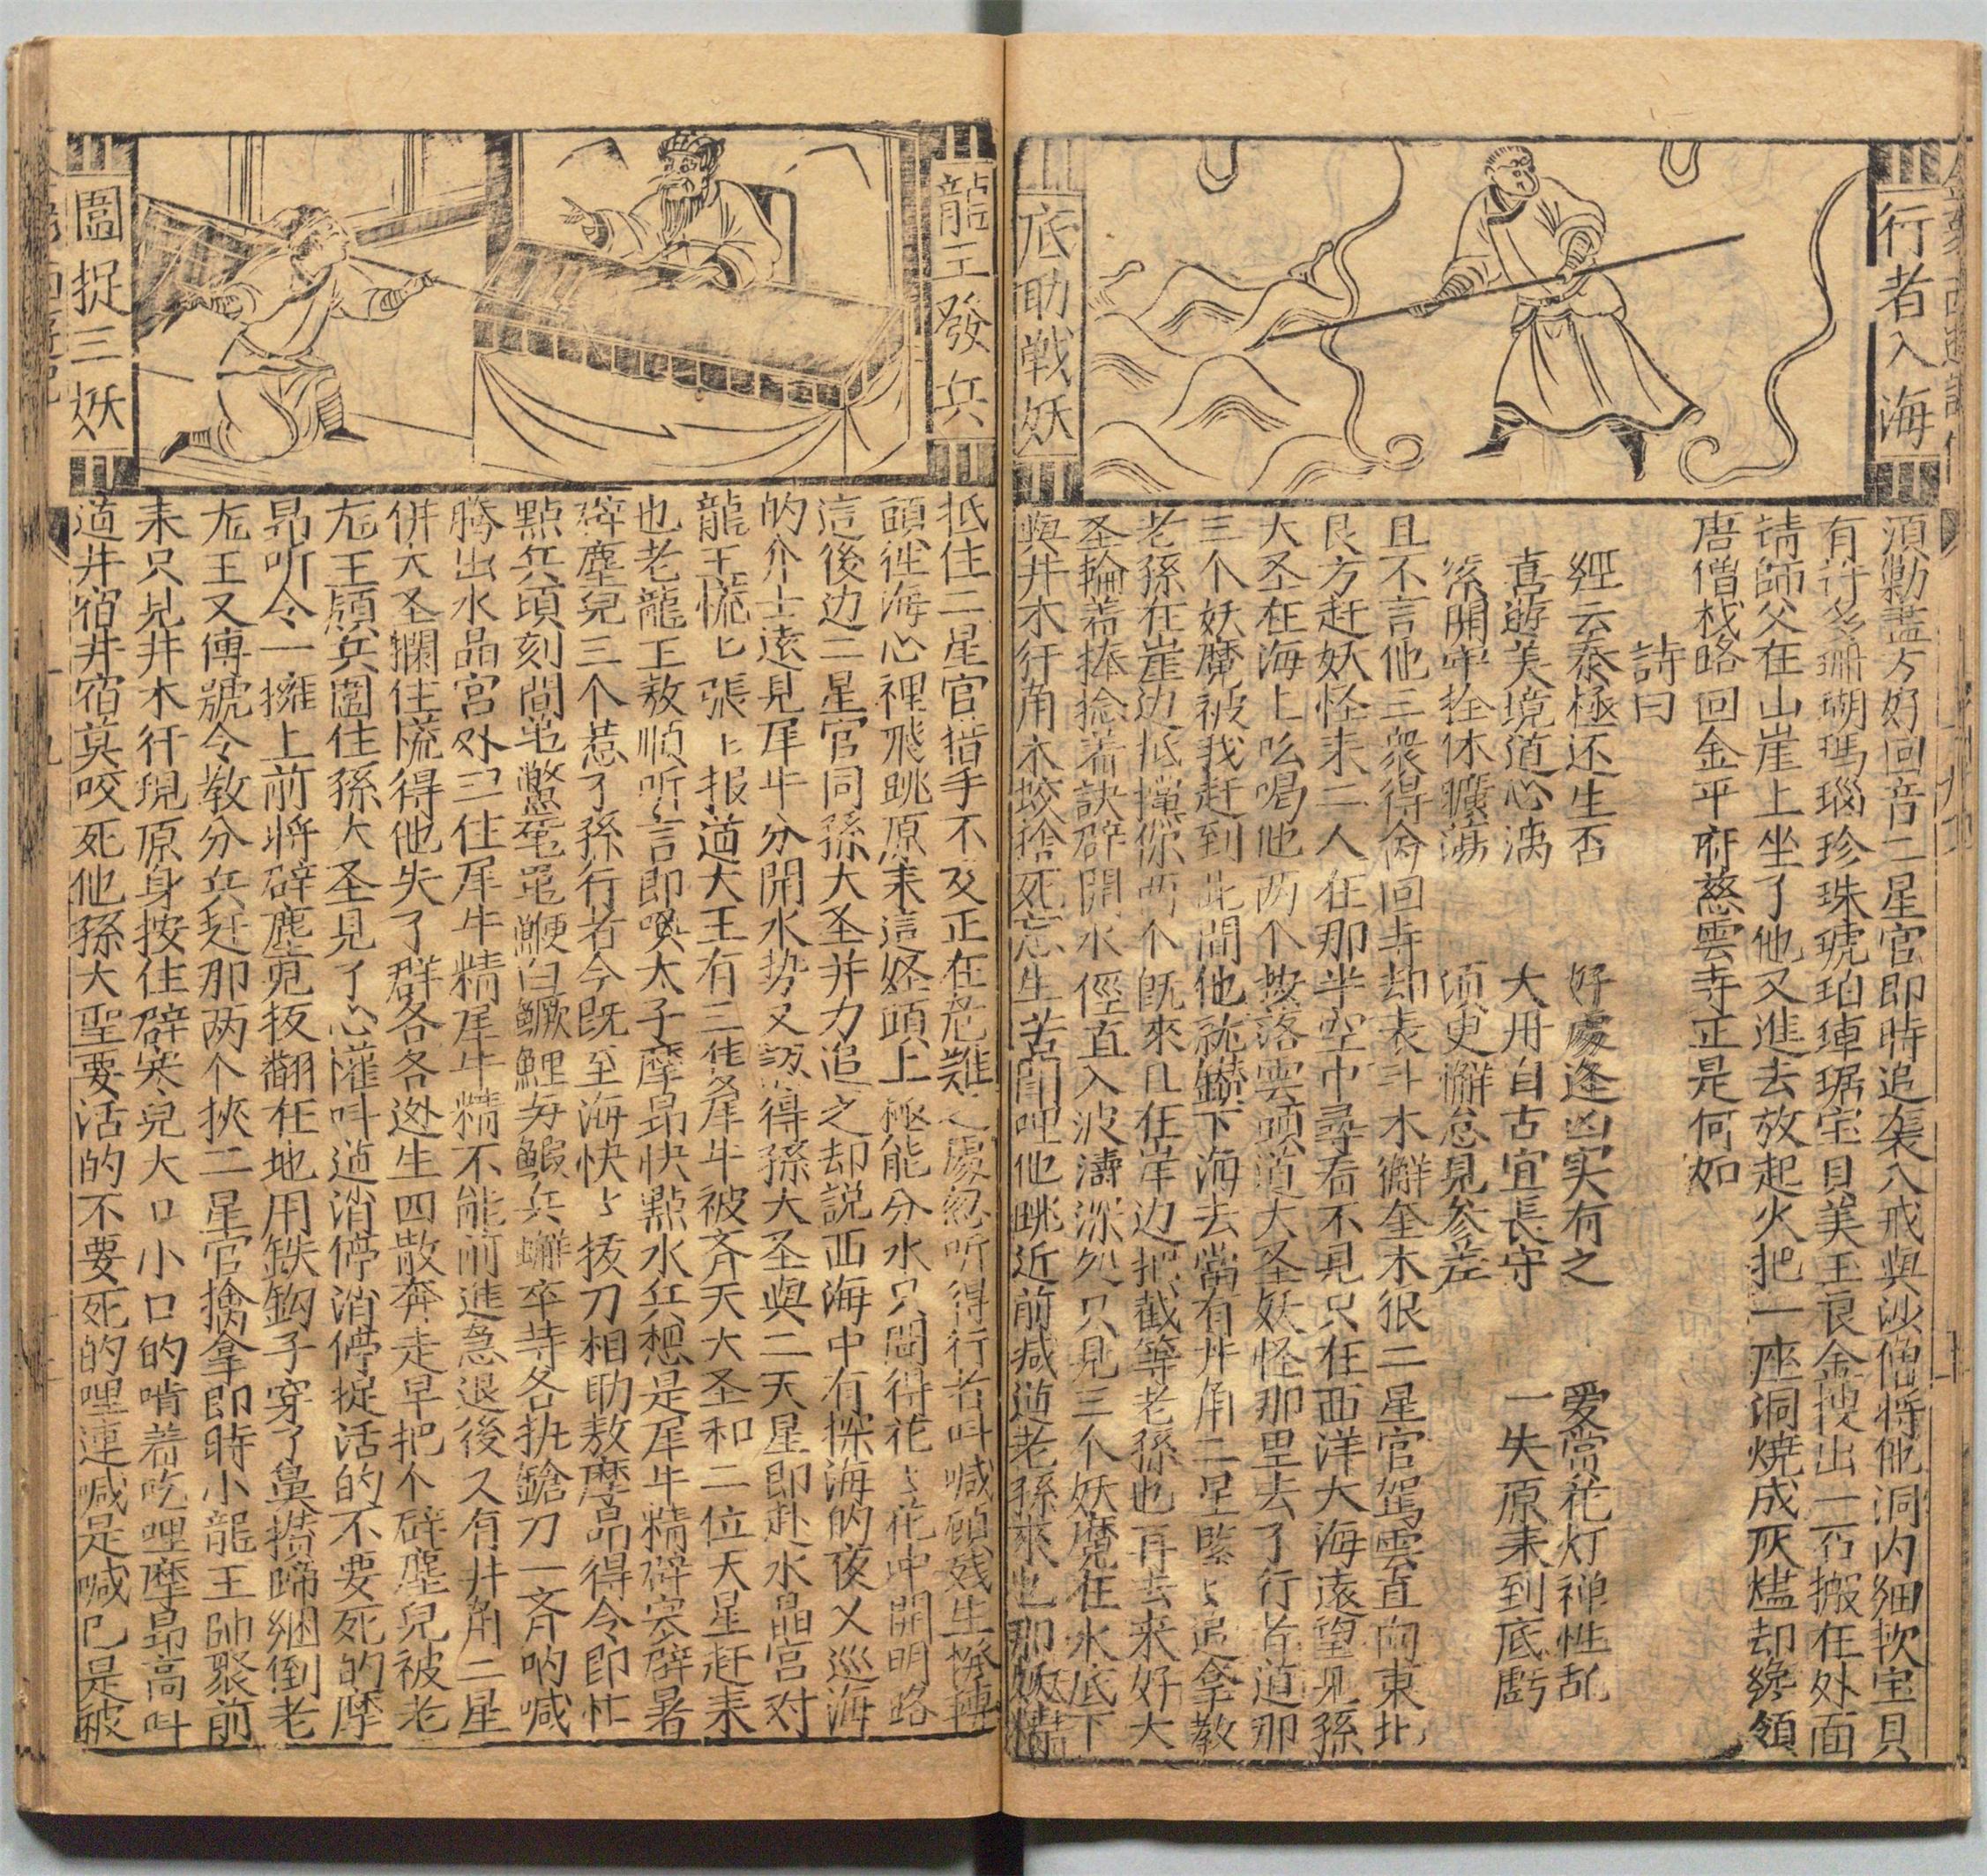 行者入海
底助戦妖
須勦盡方好回音二星官即時追襲八戒與沙僧將他洞内細軟宝貝
有許多珊瑚瑪瑙珍珠琥珀琗琚宝貝美玉良金搜出一石搬在外面
請師父在山崖上坐了他又進去放起火把一座洞燒成灰燼却纔領
唐僧找路回金平府慈雲寺正是何如
詩曰
經云泰極还生否 好處逢凶实有之 愛賞花灯禅性乱
喜遊美境道心漓 大丹自古宜長守 一失原来到底虧
緊閉牢拴休曠荡 須臾懈怠見參差
且不言他三衆得命回寺却表斗木獬奎木狼二星官駕雲直向東北
艮方赶妖怪来二人在那半空中尋看不見只在西洋大海遠望見孫
大圣在海上吆喝他两个按落雲頭道大圣妖怪那里去了行者道那
三个妖魔被我赶到此間他就鑽下海去當有井角二星緊〻追拿教
老孫在崖边抵攩你两个既來且在岸边把截等老孫也再去来好大
圣輪着捧捻着訣辟開水俓直入波濤深処只見三个妖魔在水底下
與井木犴角木蛟捨死忘生苦鬪哩他跳近前喊道老孫來也那妖精
龍王發兵
圍捉三妖
抵住二星官措手不及正在危難之處忽听得行者叫喊顧残生撥轉
頭徃海心裡飛跳原来這妖頭上極能分水只聞得花〻花冲開明路
這後边二星官同孫大圣并力追之却説西海中有探海的夜义巡海
的介士遠見犀牛分開水势又認得孫大圣與二天星即赴水晶宮对
龍王慌〻張〻报道大王有三隻犀牛被齐天大圣和二位天星赶来
也老龍王敖順听言即喚太子摩昂快點水兵想是犀牛精辟寒辟暑
辟塵兒三个惹了孫行者今既至海快〻拔刀相助敖摩昂得令即忙
點兵頃刻間黿鱉黿鼉鯾白鱖鯉與鰕兵蠏卒等各执鎗刀一斉吶喊
腾出水晶宮外当住犀牛精犀牛精不能前進急退後又有井角二星
併大圣攔住慌得他失了群各各迯生四散奔走早把个辟塵兒被老
龙王領兵圍住孫大圣見了心懽叫道消停消停捉活的不要死的摩
昂听令一擁上前將辟塵兒扳翻在地用鉄鈎子穿了鼻攢蹄綑倒老
龙王又傳號令教分兵赶那两个挾二星官擒拿即時小龍王帥衆前
来只見井木犴現原身按住辟寒兒大口小口的啃着吃哩摩昂高叫
道井宿井宿莫咬死他孫大聖要活的不要死的哩連喊是喊已是被